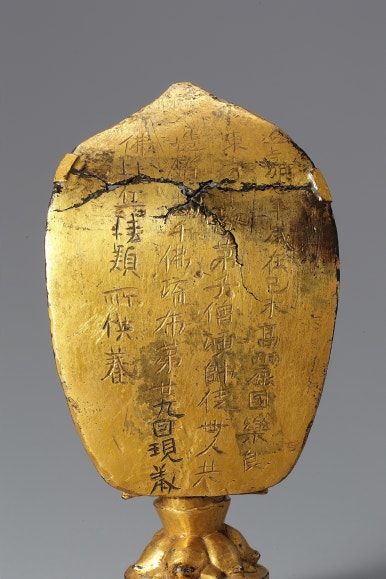 延嘉七年歲在己未高麗國樂良
東寺主敬弟子僧演師徒卌人共
造賢劫千佛流布第廿九回現歲
佛比丘擣穎所供養